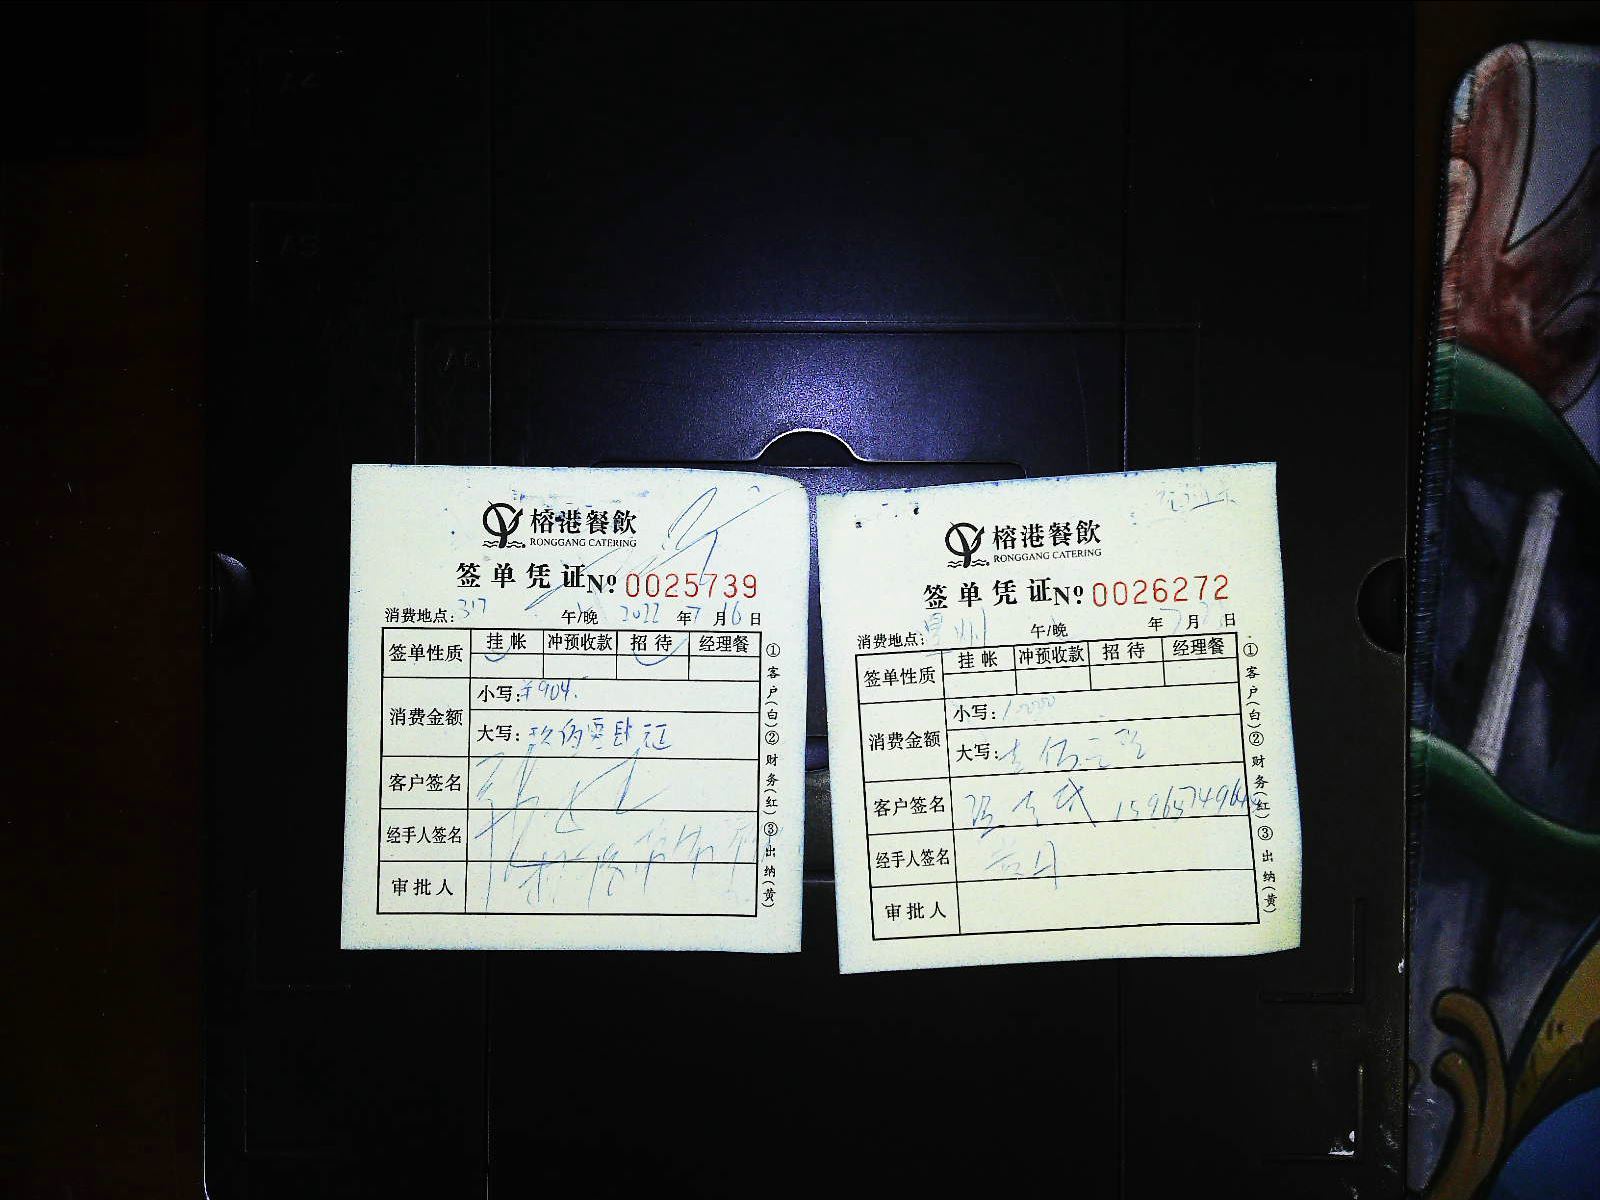 榕港餐飲
RONGGANG CATERING
签单凭证 No 0025739
消费地点: 317 午/晚 2022 年 7 月 16 日
签单性质 挂帐 冲预收款 招待 经理餐
消费金额 小写: ¥904.
大写: 玖佰零肆元
客户签名
经手人签名
审批人
①客户(白)②财务(红)③出纳(黄)
榕港餐飲
RONGGANG CATERING
签单凭证 No 0026272
消费地点: 午/晚 年 7 月 日
签单性质 挂帐 冲预收款 招待 经理餐
消费金额 小写:
大写:
客户签名
经手人签名
审批人
①客户(白)②财务(红)③出纳(黄)